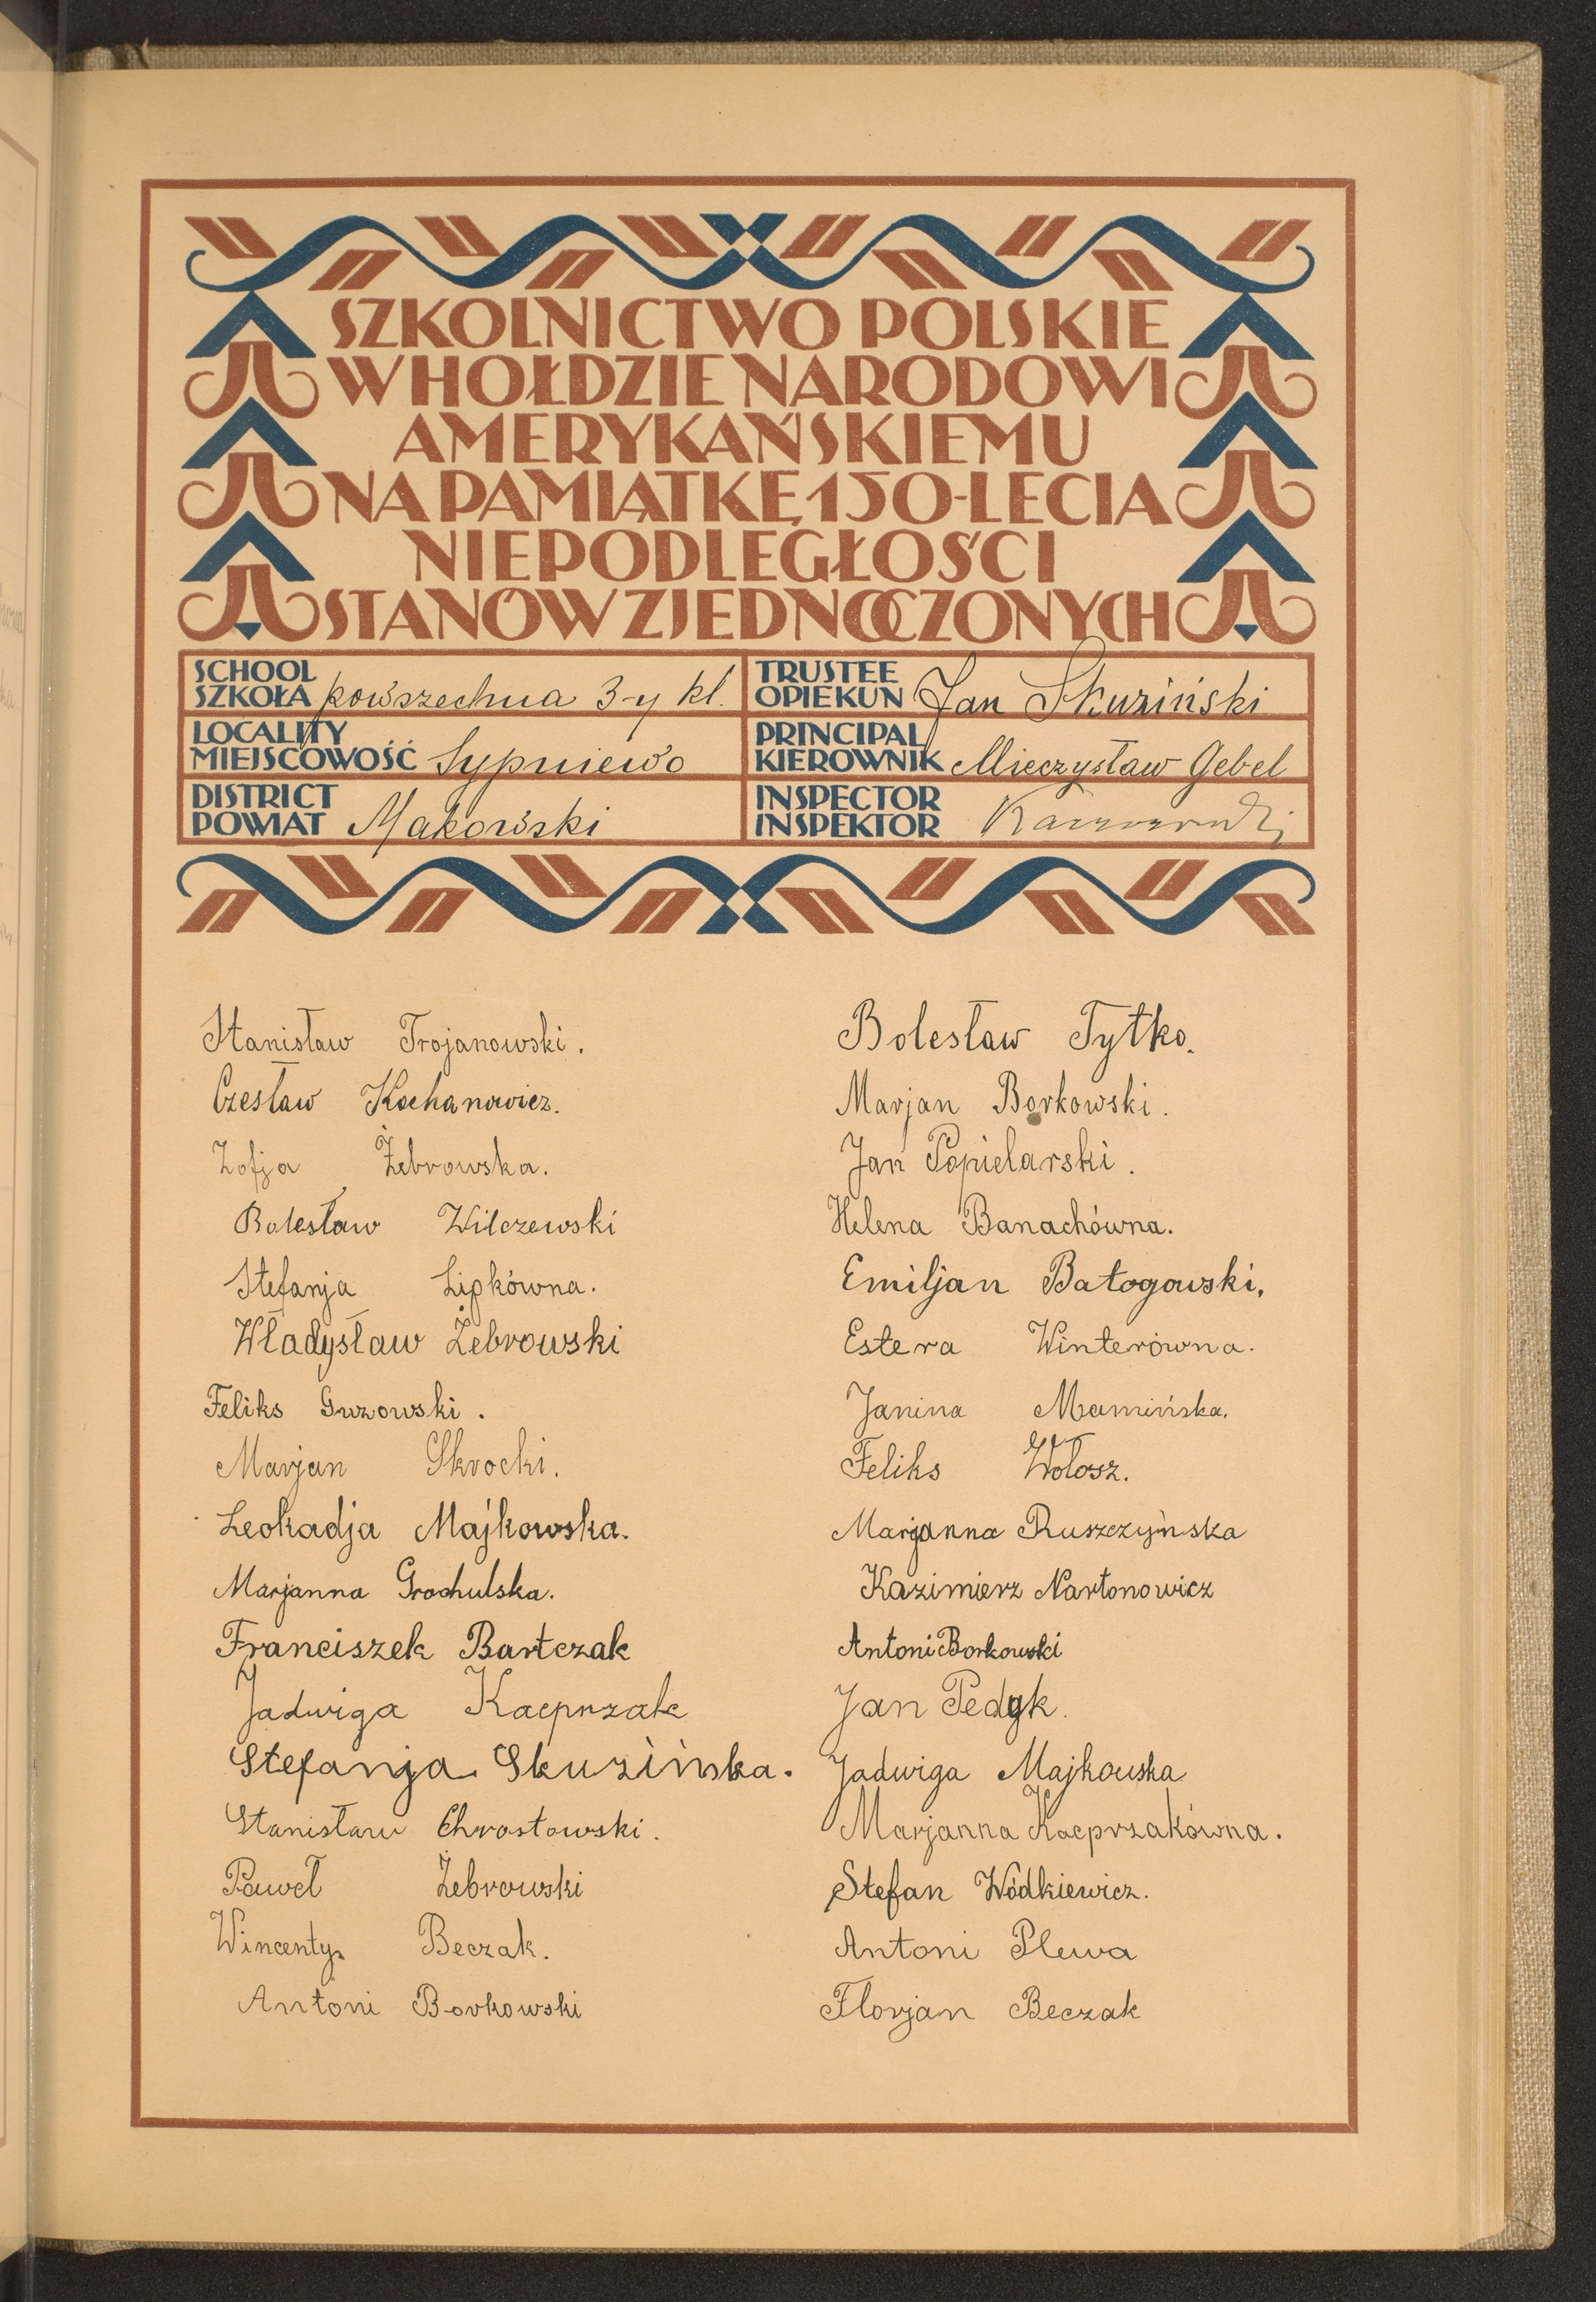 SZKOLNICTWO POLSKIE
W HOŁDZIE NARODOWI
AMERYKAŃSKIEMU
NA PAMIĄTKĘ 150-LECIA
NIEPODLEGŁOŚCI
STANÓW ZJEDNOCZONYCH
SCHOOL
SZKOŁA powszechna 3-y kl.
LOCALITY
MIEJSCOWOŚĆ Sypniewo
DISTRICT
POWIAT Makowski
TRUSTEE
OPIEKUN Jan Skuziński
PRINCIPAL
KIEROWNIK Mieczysław Gebel
INSPECTOR
INSPEKTOR
Stanisław Trojanowski.
Czesław Kochanowicz.
Zofja Żebrowska.
Bolesław Wilczewski
Stefanja Lipkówna.
Władysław Żebrowski
Feliks Guzowski.
Marjan Skrocki.
Leokadja Majkowska.
Marjanna Grochulska.
Franciszek Bartczak
Jadwiga Kacprzak
Stefanja Skuzińska.
Stanisław Chrostowski.
Paweł Żebrowski
Wincenty Beczak.
Antoni Borkowski
Bolesław Tytko.
Marjan Borkowski.
Jan Popielarski.
Helena Banachówna.
Emiljan Batogowski.
Estera Winterówna.
Janina Mamińska.
Feliks Wołosz.
Marjanna Ruszczyńska
Kazimierz Nartonowicz
Antoni Borkowski
Jan Pedyk.
Jadwiga Majkowska
Marjanna Kacprzakówna.
Stefan Wódkiewicz.
Antoni Plewa
Florjan Beczak